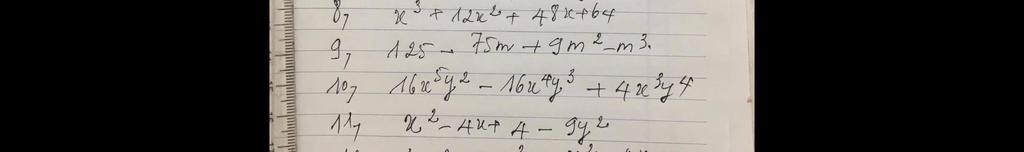 8, x³ + 12x² + 48x + 64
9, 125 - 75m + 9m² - m³.
10, 16x⁵y² - 16x⁴y³ + 4x³y⁴
11, x² - 4x + 4 - 9y²